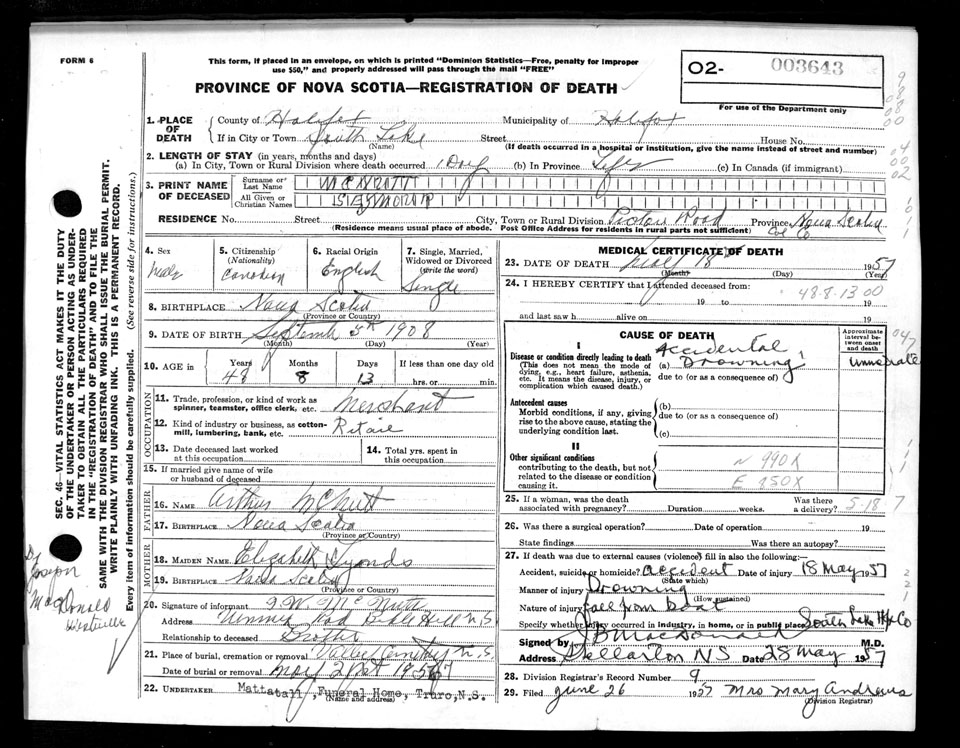 FORM 6
This form, if placed in an envelope, on which is printed "Dominion Statistics—Free, penalty for improper
use $50," and properly addressed will pass through the mail "FREE"
PROVINCE OF NOVA SCOTIA—REGISTRATION OF DEATH
O2- 003643
For use of the Department only
1. PLACE OF DEATH
County of Halifax Municipality of Halifax
If in City or Town South Lake Street House No.
(Name) (If death occurred in a hospital or institution, give the name instead of street and number)
2. LENGTH OF STAY (in years, months and days)
(a) In City, Town or Rural Division where death occurred 1 Day (b) In Province Life (c) In Canada (if immigrant)
3. PRINT NAME OF DECEASED
Surname or Last Name MCNUTT
All Given or Christian Names SEYMOUR
RESIDENCE No. Street City, Town or Rural Division Pictou Road Province Nova Scotia
Col Co
(Residence means usual place of abode. Post Office Address for residents in rural parts not sufficient)
4. Sex Male
5. Citizenship (Nationality) Canadian
6. Racial Origin English
7. Single, Married, Widowed or Divorced (write the word) Single
8. BIRTHPLACE Nova Scotia
(Province or Country)
9. DATE OF BIRTH September 5th 1908
(Month) (Day) (Year)
10. AGE in Years 48 Months 8 Days 13 If less than one day
hrs. or min.
OCCUPATION
11. Trade, profession, or kind of work as spinner, teamster, office clerk, etc. Merchant
12. Kind of industry or business, as cotton-mill, lumbering, bank, etc. Retail
13. Date deceased last worked at this occupation
14. Total yrs. spent in this occupation
15. If married give name of wife or husband of deceased
FATHER
16. NAME Arthur McNutt
17. BIRTHPLACE Nova Scotia
(Province or Country)
MOTHER
18. MAIDEN NAME Elizabeth Lyonds
19. BIRTHPLACE Nova Scotia
(Province or Country)
20. Signature of informant McNutt
Address Road Bible Hill N.S.
Relationship to deceased Brother
21. Place of burial, cremation or removal Cemetery N.S.
Date of burial or removal May 21st 1957
22. UNDERTAKER Mattatall, Funeral Home, Truro, N.S.
(Name and address)
MEDICAL CERTIFICATE OF DEATH
23. DATE OF DEATH May 18 1957
(Month) (Day) (Year)
24. I HEREBY CERTIFY that I attended deceased from:
48-8-1300
19 to 19
and last saw h alive on 19
CAUSE OF DEATH
Approximate interval between onset and death
I
Disease or condition directly leading to death
(This does not mean the mode of dying, e.g., heart failure, asthenia, etc. It means the disease, injury, or complication which caused death.)
(a) Accidental Drowning
due to (or as a consequence of)
Immediate
Antecedent causes
Morbid conditions, if any, giving rise to the above cause, stating the underlying condition last.
(b)
due to (or as a consequence of)
(c)
II
Other significant conditions
contributing to the death, but not related to the disease or condition causing it
N 990X
E 850X
25. If a woman, was the death associated with pregnancy? Duration weeks. Was there a delivery?
5-18-7
26. Was there a surgical operation? Date of operation 19
State findings Was there an autopsy?
27. If death was due to external causes (violence) fill in also the following:—
Accident, suicide or homicide? Accident Date of injury 18 May 1957
(State which)
Manner of injury Drowning
(How sustained)
Nature of injury fall from boat
Specify whether injury occurred in industry, in home, or in public place South Lake Hfx Co
Signed by J B MacDonald M.D.
Address Stellarton NS Date 28 May 1957
28. Division Registrar's Record Number 9
29. Filed June 26 1957 Mrs Mary Andrews
(Division Registrar)
SEC. 46—VITAL STATISTICS ACT MAKES IT THE DUTY
OF THE UNDERTAKER OR PERSON ACTING AS UNDER-
TAKER TO OBTAIN ALL THE PARTICULARS REQUIRED
IN THE "REGISTRATION OF DEATH" AND TO FILE THE
SAME WITH THE DIVISION REGISTRAR WHO SHALL ISSUE THE BURIAL PERMIT.
WRITE PLAINLY WITH UNFADING INK. THIS IS A PERMANENT RECORD.
Every item of information should be carefully supplied. (See reverse side for instructions.)
Dr Joseph
MacDonald
Westville